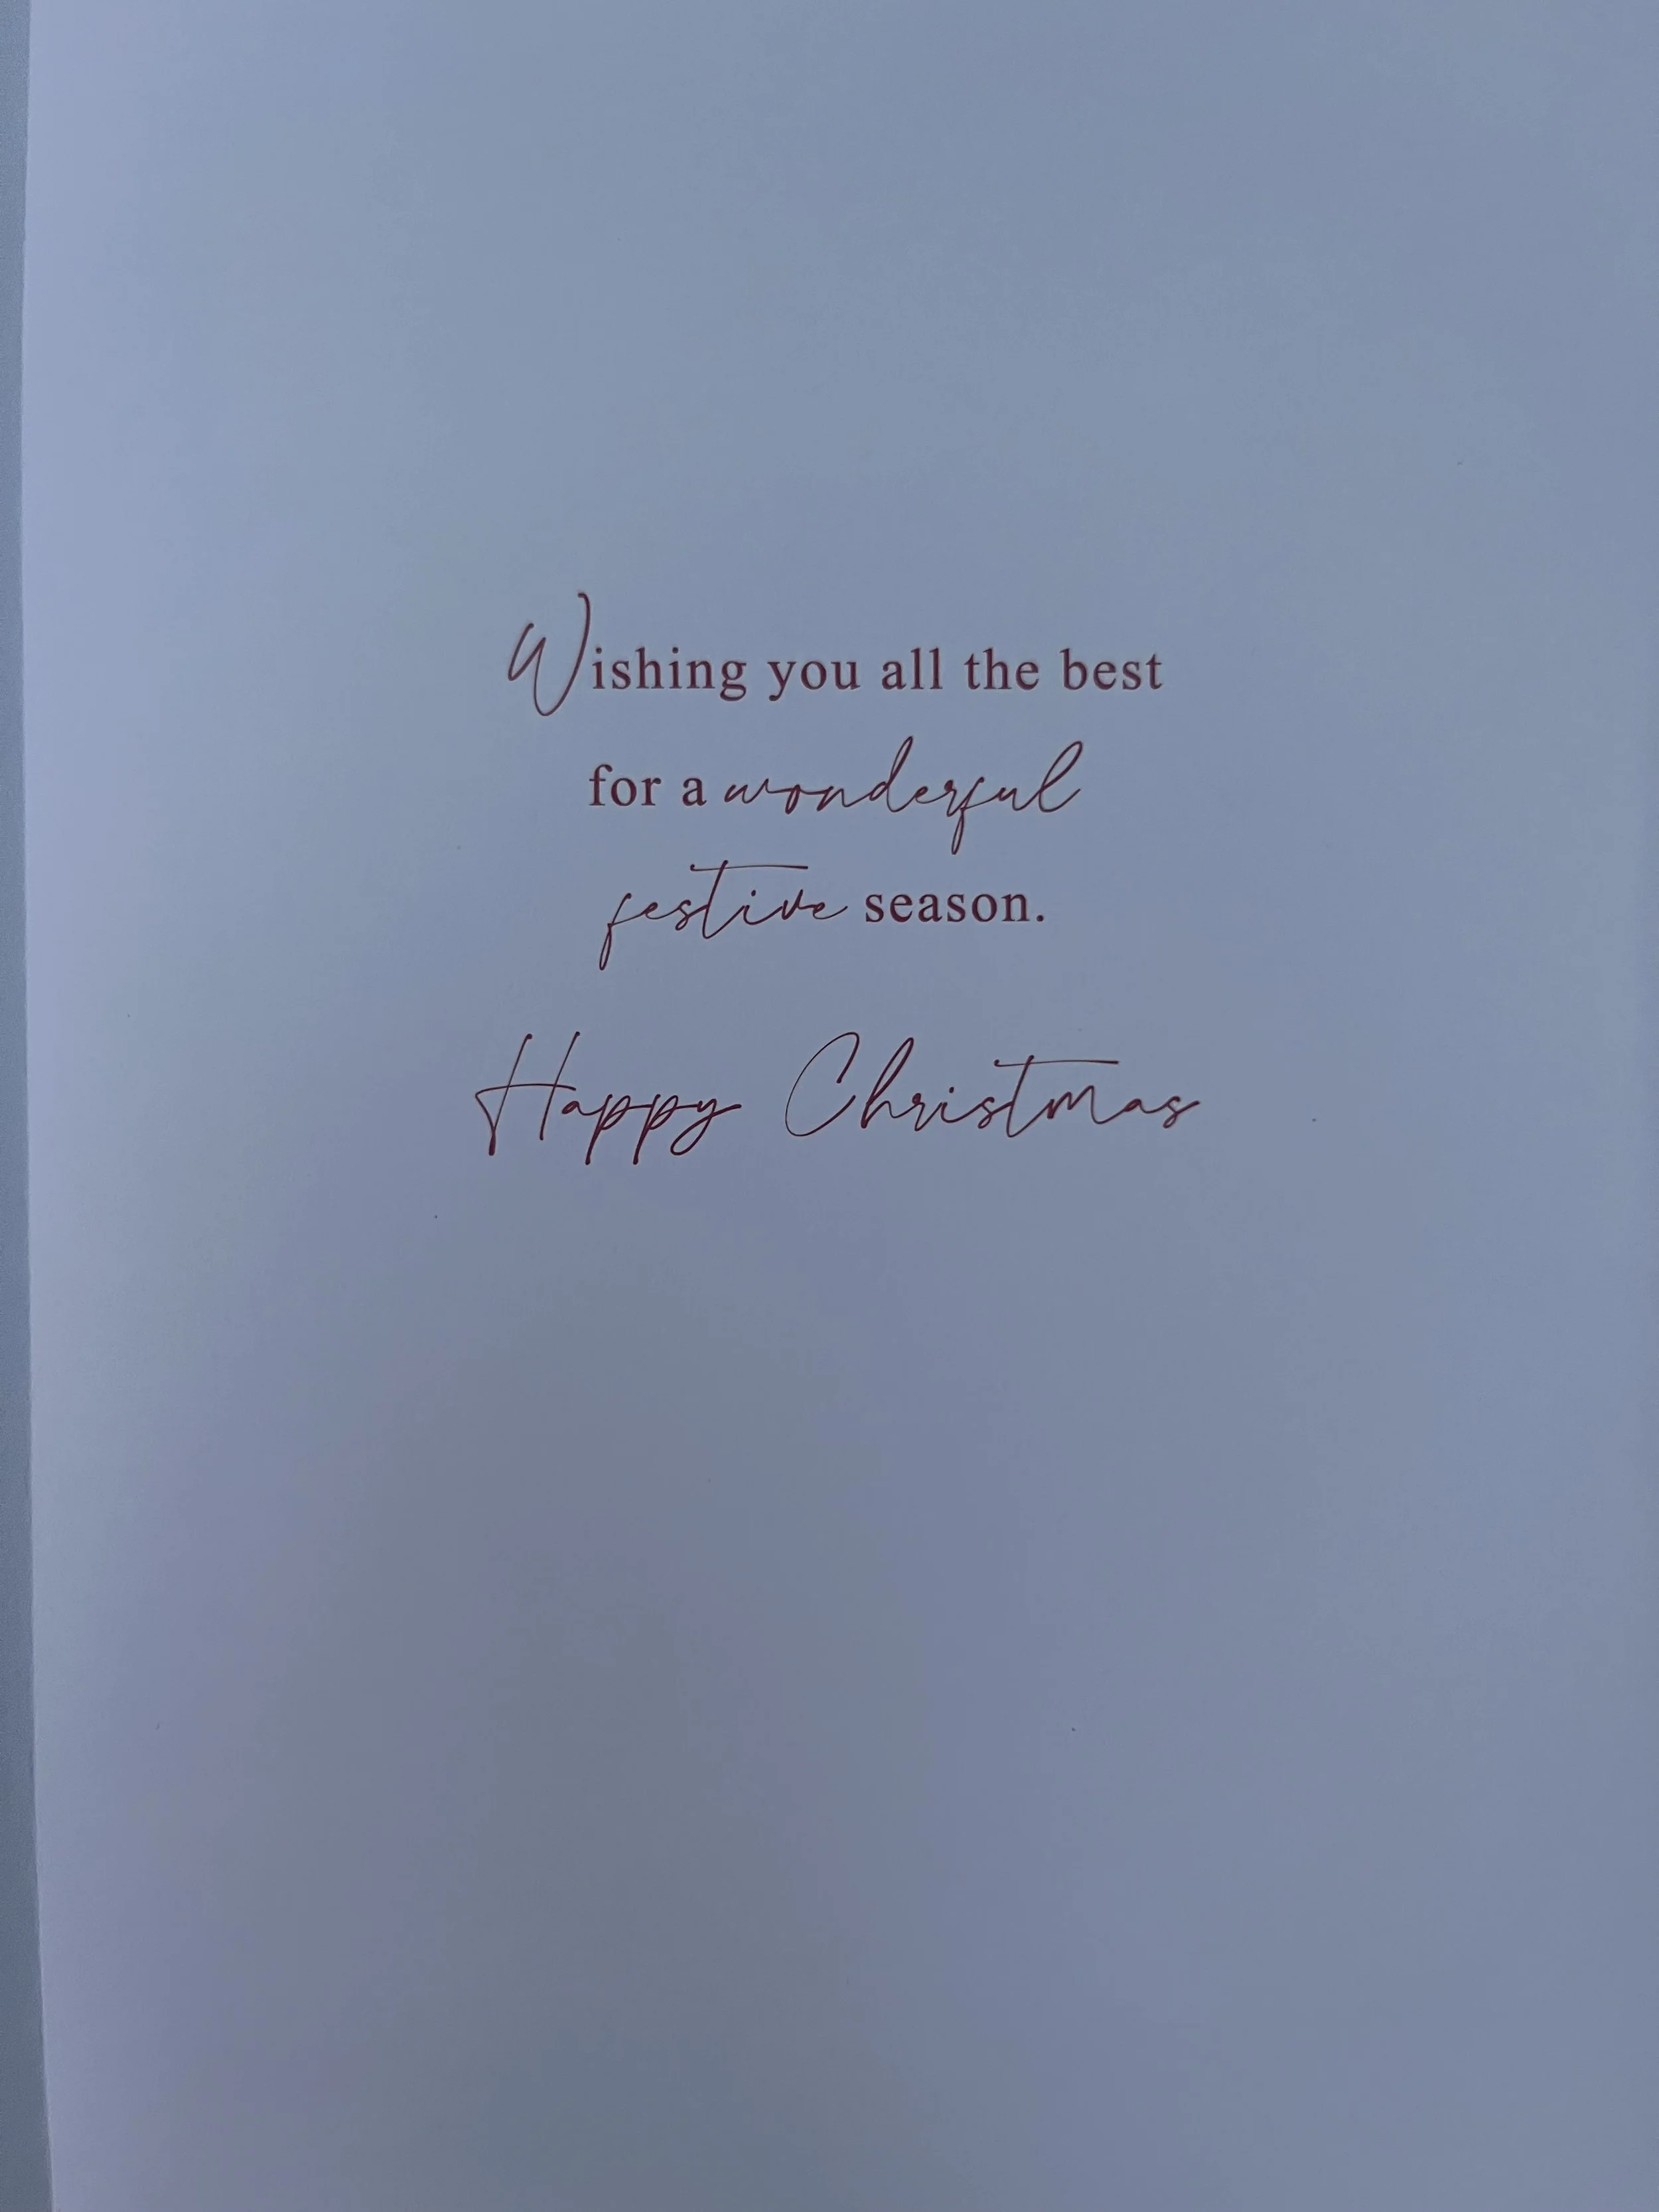 Wishing you all the best
for a wonderful
festive season.
Happy Christmas